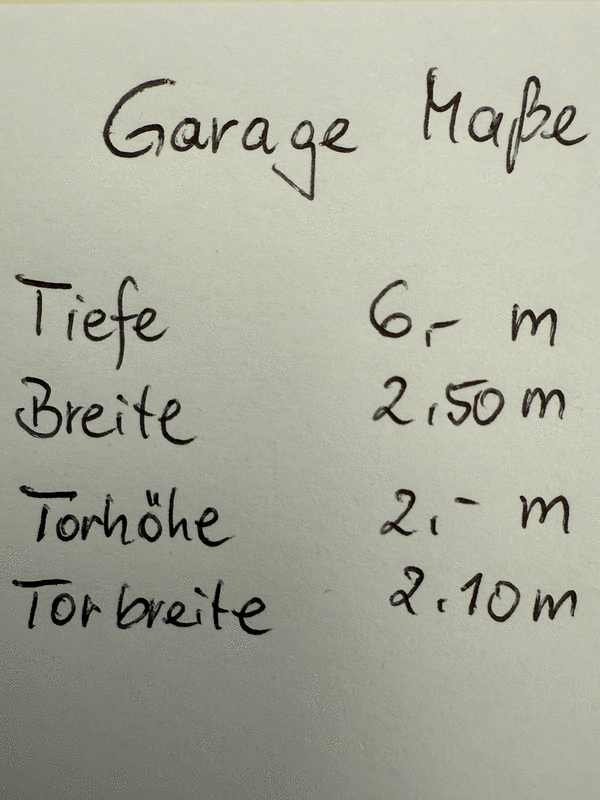 Garage Maße
Tiefe 6,- m
Breite 2,50 m
Torhöhe 2,- m
Torbreite 2,10 m